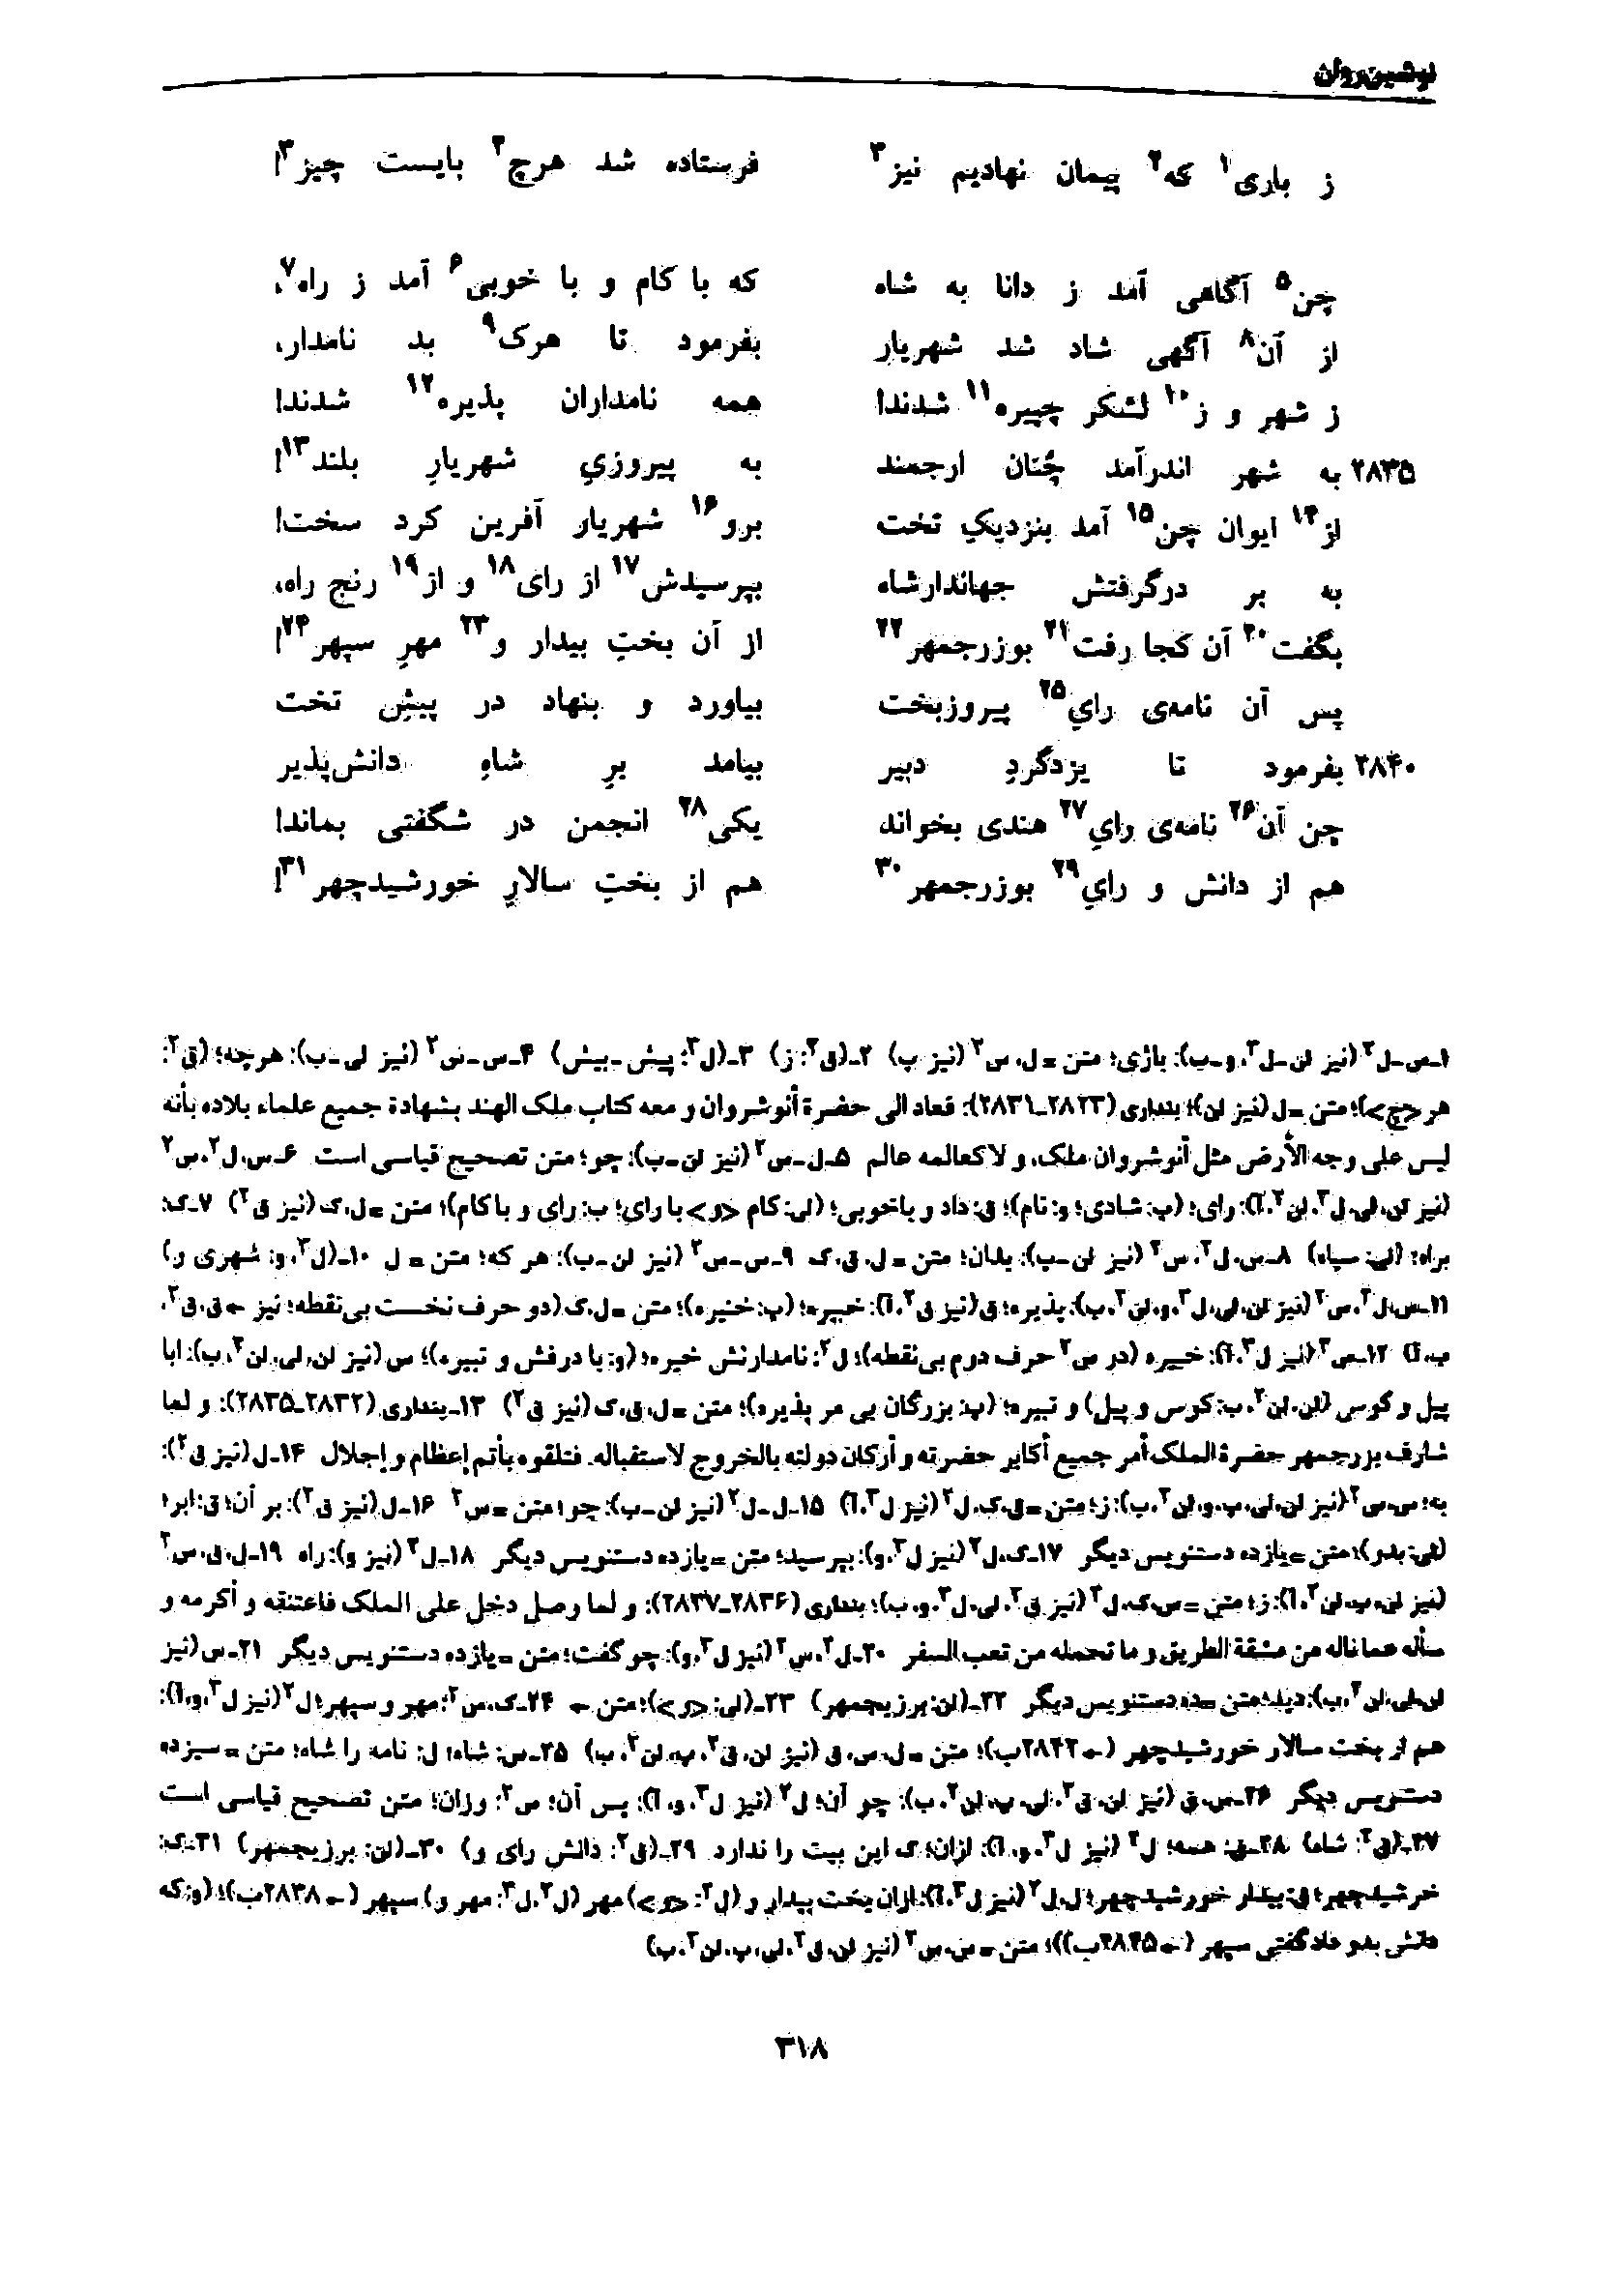 نوشین‌روان
ز باری۱ که۲ پیمان نهادیم نیز۳ فرستاده شد هرچ۴ بایست چیز۳!
چن۵ آگاهی آمد ز دانا به شاه که با کام و با خوبی۶ آمد ز راه۷،
از آن۸ آگهی شاد شد شهریار بفرمود تا هرک۹ بد نامدار،
ز شهر و ز۱۰ لشکر چپیره۱۱ شدند! همه نامداران پذیره۱۲ شدند!
۲۸۳۵ به شهر اندرآمد چُنان ارجمند به پیروزیِ شهریارِ بلند۱۳!
از۱۴ ایوان چن۱۵ آمد بنزدیکِ تخت برو۱۶ شهریار آفرین کرد سخت!
به بر درگرفتش جهاندارشاه بپرسیدش۱۷ از رای۱۸ و از۱۹ رنج راه،
بگفت۲۰ آن کجا رفت۲۱ بوزرجمهر۲۲ از آن بختِ بیدار و۲۳ مهرِ سپهر۲۴!
پس آن نامه‌ی رایِ۲۵ پیروزبخت بیاورد و بنهاد در پیشِ تخت
۲۸۴۰ بفرمود تا یزدگردِ دبیر بیامد برِ شاهِ دانش‌پذیر
چن آن۲۶ نامه‌ی رایِ۲۷ هندی بخواند، یکی۲۸ انجمن در شگفتی بماند!
هم از دانش و رایِ۲۹ بوزرجمهر۳۰ هم از بختِ سالارِ خورشیدچهر۳۱!
۱ـ س ـ ل۲ (نیز لن ـ ل۳، و ـ ب): بازی؛ متن = ل، س۲ (نیز پ) ۲ـ (ق۲: ز) ۳ـ (ل۳: پیش ـ بیش) ۴ـ س ـ س۲ (نیز لی ـ ب): هرچه؛ (ق۲:
هر <چ>)؛ متن = ل (نیز لن)؛ بنداری (۲۸۲۳ـ۲۸۳۱): فعاد الی حضرة أنوشروان و معه کتاب ملک الهند بشهادة جمیع علماء بلاده بأنه
لیس علی وجه الأرض مثل أنوشروان ملک، و لا کعالمه عالم ۵ـ ل ـ س۲ (نیز لن ـ ب): چو؛ متن تصحیح قیاسی است ۶ـ س، ل۲، س۲
(نیز لن، لی، ل۳، لن۲، آ): رای؛ (پ: شادی؛ و: نام)؛ ق: داد و باخوبی؛ (لی: کام <و> با رای؛ ب: رای و با کام)؛ متن = ل، ک (نیز ق۲) ۷ـ ک:
براه؛ (لی: سپاه) ۸ـ س، ل۲، س۲ (نیز لن ـ ب): بدان؛ متن = ل، ق، ک ۹ـ س ـ س۲ (نیز لن ـ ب): هر که؛ متن = ل ۱۰ـ (ل۳، و: شهری و)
۱۱ـ س، ل۲، س۲ (نیز لن، لی، ل۳، و، لن۲، ب): پذیره؛ ق (نیز ق۲، آ): خبیره؛ (پ: خنیره)؛ متن = ل، ک (دو حرف نخست بی‌نقطه؛ نیز ← ق، ق۲،
پ، آ) ۱۲ـ س۲ (نیز ل۳، آ): خبیره (در س۲ حرف دوم بی‌نقطه)؛ ل۲: نامدارنش خیره؛ (و: با درفش و تبیره)؛ س (نیز لن، لی، لن۲، ب): ابا
پیل و کوس (لن، لن۲، ب: کوس و پیل) و تبیره؛ (پ: بزرگان بی مر پذیره)؛ متن = ل، ق، ک (نیز ق۲) ۱۳ـ بنداری (۲۸۳۲ـ۲۸۳۵): و لما
شارف بزرجمهر حضرة الملک أمر جمیع أکابر حضرته و أرکان دولته بالخروج لاستقباله. فتلقوه بأتم إعظام و إجلال ۱۴ـ ل (نیز ق۲):
به؛ س، س۲ (نیز لن، لی، پ، و، لن۲، ب): ز؛ متن = ق، ک، ل۲ (نیز ل۳، آ) ۱۵ـ ل ـ ل۲ (نیز لن ـ ب): چو؛ متن = س۲ ۱۶ـ ل (نیز ق۲): بر آن؛ ق: ابر؛
(لی: بدو)؛ متن = یازده دستنویس دیگر ۱۷ـ ک، ل۲ (نیز ل۳، و): بپرسید؛ متن = یازده دستنویس دیگر ۱۸ـ ل۲ (نیز و): راه ۱۹ـ ل، ق، س۲
(نیز لن، پ، لن۲، آ): ز؛ متن = س، ک، ل۲ (نیز ق۲، لی، ل۳، و، ب)؛ بنداری (۲۸۳۶ـ۲۸۳۷): و لما وصل دخل علی الملک فاعتنقه و أکرمه و
سأله عما ناله من مشقة الطریق و ما تحمله من تعب السفر ۲۰ـ ل۲، س۲ (نیز ل۳، و): چو گفت؛ متن = یازده دستنویس دیگر ۲۱ـ س (نیز
لن، لی، لن۲، ب): دید؛ متن = ده دستنویس دیگر ۲۲ـ (لن: برزیجمهر) ۲۳ـ (لی: <و>)؛ متن ← ۲۴ـ ک، س۲: مهر و سپهر؛ ل۲ (نیز ل۳، و، آ):
هم از بخت سالار خورشیدچهر (← ۲۸۴۲ب)؛ متن = ل، س، ق (نیز لن، ق۲، پ، لن۲، ب) ۲۵ـ س: شاه؛ ل: نامه را شاه؛ متن = سیزده
دستنویس دیگر ۲۶ـ س، ق (نیز لن، ق۲، لی، پ، لن۲، ب): چو آن؛ ل۲ (نیز ل۳، و، آ): پس آن؛ س۲: وزان؛ متن تصحیح قیاسی است
۲۷ـ (ق۲: شاه) ۲۸ـ ق: همه؛ ل۲ (نیز ل۳، و، آ): ازان؛ ک این بیت را ندارد ۲۹ـ (ق۲: دانش رای و) ۳۰ـ (لن: برزیجمهر) ۳۱ـ ک:
خرشیدچهر؛ ق: بیدار خورشیدچهر؛ ل، ل۲ (نیز ل۳، آ): ازان بخت بیدار و (ل۲: <و>) مهر (ل۲، ل۳: مهر و) سپهر (← ۲۸۳۸ب)؛ (و: که
دانش بدو داد گفتی سپهر (← ۲۸۴۵ب))؛ متن = س، س۲ (نیز لن، ق۲، لی، پ، لن۲، ب)
۳۱۸